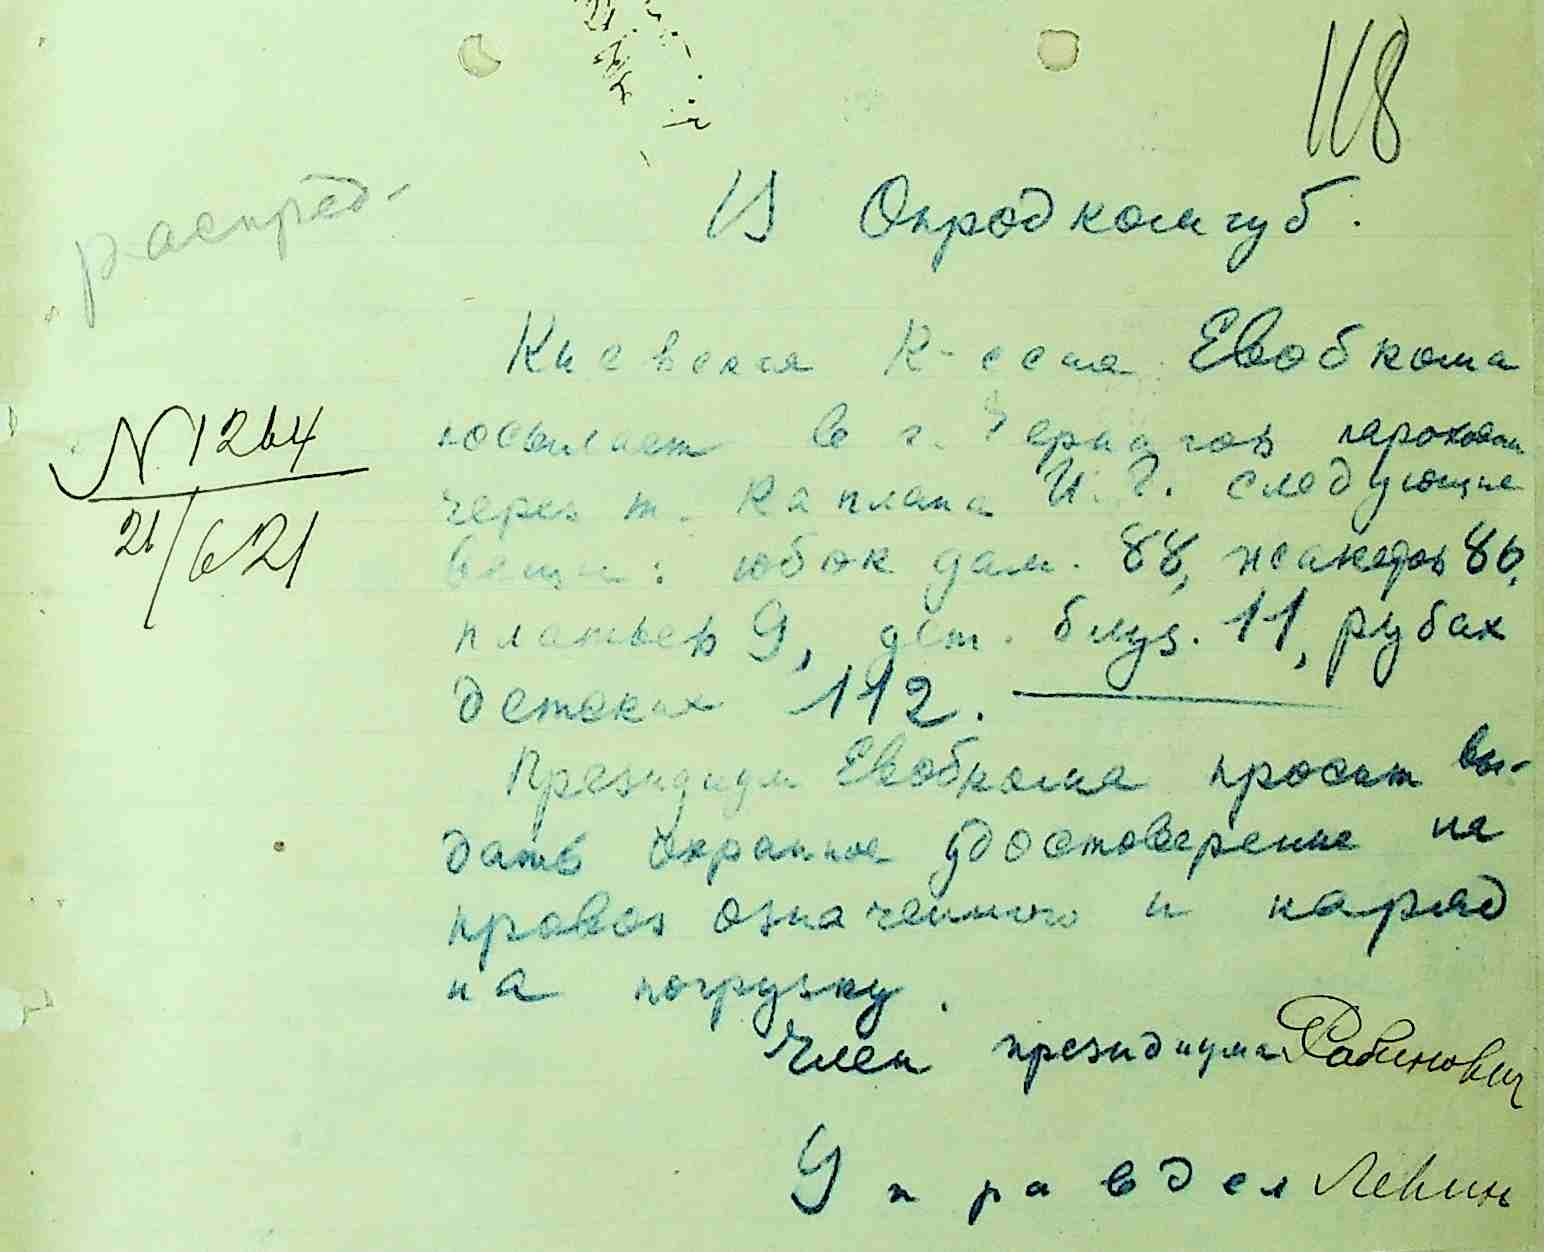 118
распред-
В Опродкомгуб.
Киевская К-ссия Евобкома
N 1264
21/6 21
посылает в г. Чернигов пароходом
через т. Каплана И. Г. следующие
вещи: юбок дам. 88, жакетов 86,
платьев 9, дет. блуз. 11, рубах
детских 112.
Президиум Евобкома просит вы-
дать охранное удостоверение на
провоз означенного и наряд
на погрузку.
Член президиума Рабинович
Управдел Левин